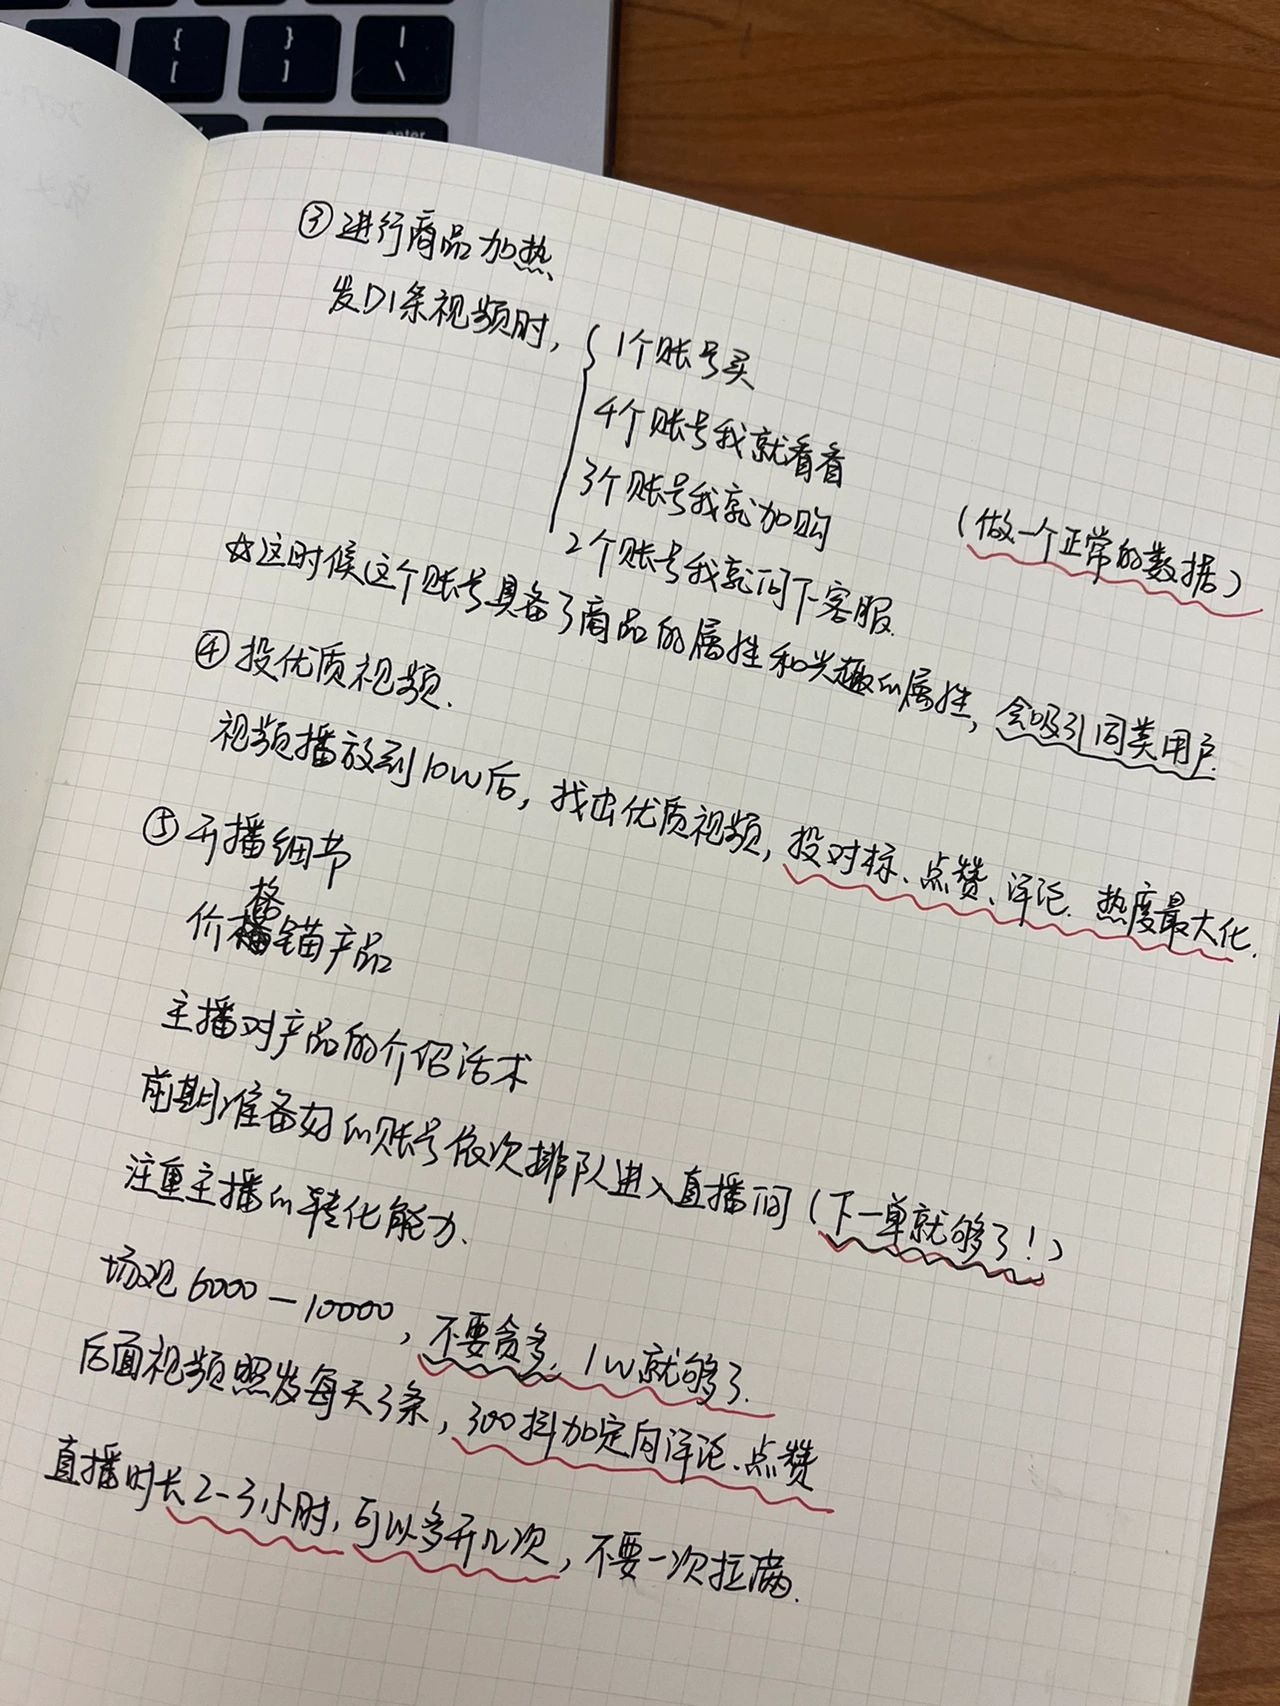 {
[
}
]
|
\
enter
③进行商品加热、
发D1条视频时,
1个账号买
4个账号我就看看
3个账号我就加购
2个账号我就问下客服.
(做一个正常的数据)
☆这时候这个账号具备了商品的属性和兴趣的属性,会吸引同类用户.
④投优质视频.
视频播放到10W后,找出优质视频,投对标、点赞、评论.热度最大化.
⑤开播细节
价格锚产品
主播对产品的介绍话术
前期准备好的账号依次排队进入直播间(下一单就够了!)
注重主播的转化能力.
场观6000—10000,不要贪多,1W就够了.
后面视频照发每天3条,300抖加定向评论、点赞
直播时长2-3小时,可以多开几次,不要一次拉满.